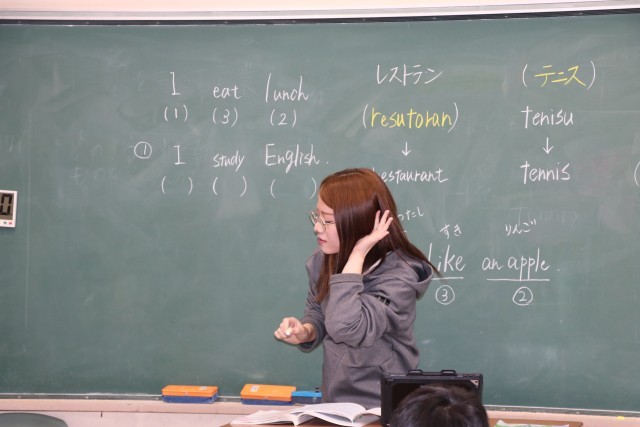 I eat lunch
(1) (3) (2)
① I study English.
( ) ( ) ( )
レストラン
(resutoran)
↓
estaurant
(テニス)
tenisu
↓
tennis
すき りんご
like an apple.
③ ②